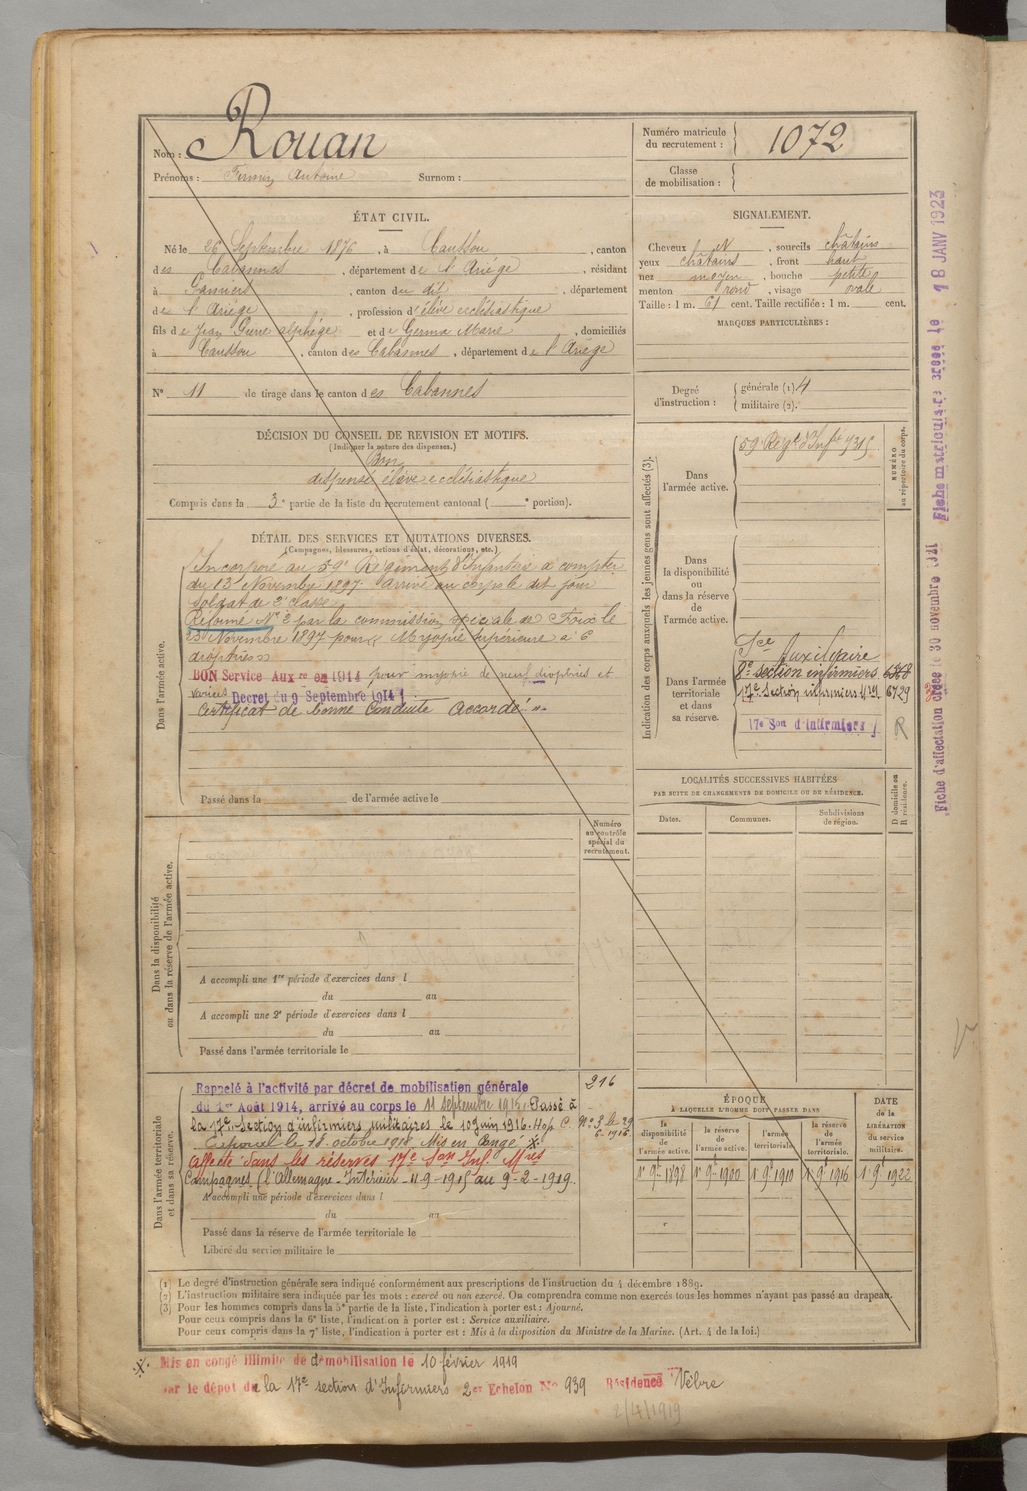 Nom : Rouan
Prénoms : Firmin Antoine Surnom :
Numéro matricule du recrutement : 1072
Classe de mobilisation :
ÉTAT CIVIL.
Né le 26 Septembre 1876, à Caussou, canton
des Cabannes, département de l'Ariége, résidant
à Pamiers, canton du dit, département
de l'Ariége, profession d'élève ecclésiastique
fils de Jean Pierre alphége et de Germa Marie, domiciliés
à Caussou, canton des Cabannes, département de l'Ariége
N° 11 de tirage dans le canton des Cabannes
SIGNALEMENT.
Cheveux N, sourcils châtains
yeux châtains, front haut
nez moyen, bouche petite
menton rond, visage ovale
Taille : 1 m. 61 cent. Taille rectifiée : 1 m. cent.
MARQUES PARTICULIÈRES :
Degré d'instruction : générale (1) 4
militaire (2).
DÉCISION DU CONSEIL DE REVISION ET MOTIFS.
(Indiquer la nature des dispenses.)
Bon
dispensé élève ecclésiastique
Compris dans la 3e partie de la liste du recrutement cantonal ( e portion).
DÉTAIL DES SERVICES ET MUTATIONS DIVERSES.
(Campagnes, blessures, actions d'éclat, décorations, etc.)
Dans l'armée active.
Incorporé au 59e Régiment d'Infanterie à compter
du 13 Novembre 1897. Arrivé au corps le dit jour
soldat de 2e classe.
Réformé N° 2 par la commission spéciale de Foix le
23 Novembre 1897 pour « Myopie supérieure à 6
dioptries »
BON Service Auxre en 1914 pour myopie de neuf dioptries et
varices Decret du 9 Septembre 1914
Certificat de bonne Conduite Accordé
Passé dans la de l'armée active le
Indication des corps auxquels les jeunes gens sont affectés (3).
NUMÉRO au répertoire du corps.
Dans l'armée active.
59 Régt d'Infie 7315
Dans la disponibilité ou dans la réserve de l'armée active.
Dans l'armée territoriale et dans sa réserve.
Sce Auxiliaire
8e section infirmiers
17e Section infirmiers 6729
17e Son d'Infirmiers
R
LOCALITÉS SUCCESSIVES HABITÉES
PAR SUITE DE CHANGEMENTS DE DOMICILE OU DE RÉSIDENCE.
Dates. Communes. Subdivisions de région.
D domicile ou R résidence.
Numéro au contrôle spécial du recrutement.
Dans la disponibilité ou dans la réserve de l'armée active.
A accompli une 1re période d'exercices dans l
du au
A accompli une 2e période d'exercices dans l
du au
Passé dans l'armée territoriale le
Dans l'armée territoriale et dans sa réserve.
216
Rappelé à l'activité par décret de mobilisation générale
du 1er Août 1914, arrivé au corps le 11 septembre 1915. Passé à
la 17e Section d'infirmiers militaires le 10 juin 1916.
le 18 octobre 1918. Mis en Congé
affecté dans les réserves 17e Son Inf. Mres
Campagnes (l'Allemagne. Intérieur 11-9-1915 au 9-2-1919.
A accompli une période d'exercices dans l
du au
Passé dans la réserve de l'armée territoriale le
Libéré du service militaire le
ÉPOQUE
À LAQUELLE L'HOMME DOIT PASSER DANS
la disponibilité de l'armée active. la réserve de l'armée active. l'armée territoriale. la réserve de l'armée territoriale.
DATE de la LIBÉRATION du service militaire.
1er 9bre 1898 1er 9bre 1900 1er 9bre 1910 1er 9bre 1916 1er 9bre 1922
(1) Le degré d'instruction générale sera indiqué conformément aux prescriptions de l'instruction du 4 décembre 1889.
(2) L'instruction militaire sera indiquée par les mots : exercé ou non exercé. On comprendra comme non exercés tous les hommes n'ayant pas passé au drapeau.
(3) Pour les hommes compris dans la 5e partie de la liste, l'indication à porter est : Ajourné.
Pour ceux compris dans la 6e liste, l'indication à porter est : Service auxiliaire.
Pour ceux compris dans la 7e liste, l'indication à porter est : Mis à la disposition du Ministre de la Marine. (Art. 4 de la loi.)
Mis en congé illimité de démobilisation le 10 février 1919
par le dépôt de la 17e section d'Infirmiers 2er Echelon No 939 Résidence Vèbre
2/4/1919
Fiche d'affectation créée le 30 novembre 1921 Fiche matriculaire créée le 18 JANV 1923